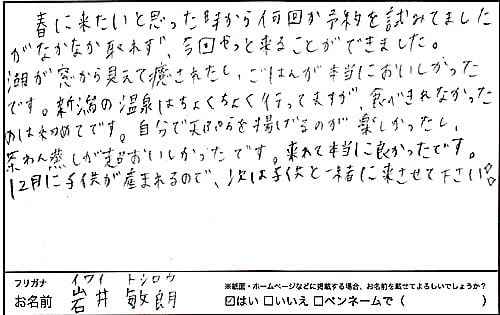 春に来たいと思った時から何回か予約を試みてました
がなかなか取れず、今回やっと来ることができました。
湖が窓から見えて癒されたし、ごはんが本当においしかった
です。新潟の温泉はちょくちょく行ってますが、食べきれなかった
のは初めてです。自分で天ぷらを揚げるのが楽しかったし、
茶わん蒸しが超おいしかったです。来れて本当に良かったです。
12月に子供が産まれるので、次は子供と一緒に来させて下さい♡
フリガナ イワイ トシロウ
お名前 岩井 敏朗
※紙面・ホームページなどに掲載する場合、お名前を載せてよろしいでしょうか？
☑はい □いいえ □ペンネームで（ ）